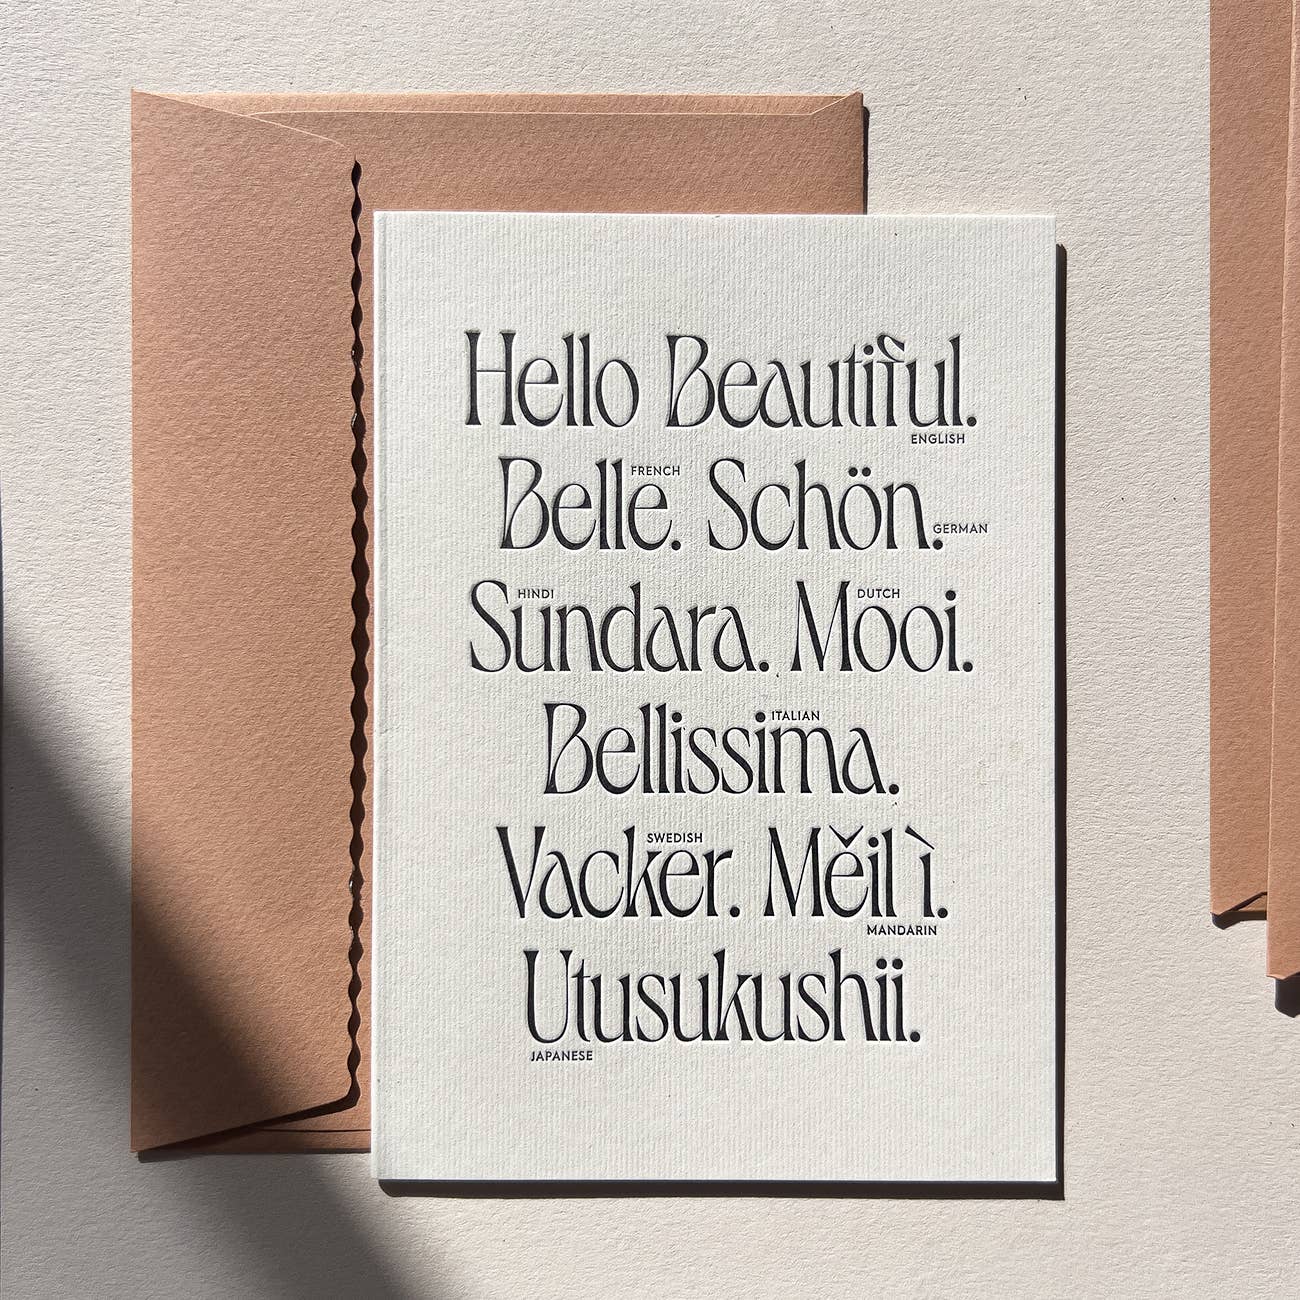 Hello Beautiful.
ENGLISH
Belle. Schön.
FRENCH
GERMAN
Sundara. Mooi.
HINDI
DUTCH
Bellissima.
ITALIAN
Vacker. Měil ì.
SWEDISH
MANDARIN
Utusukushii.
JAPANESE